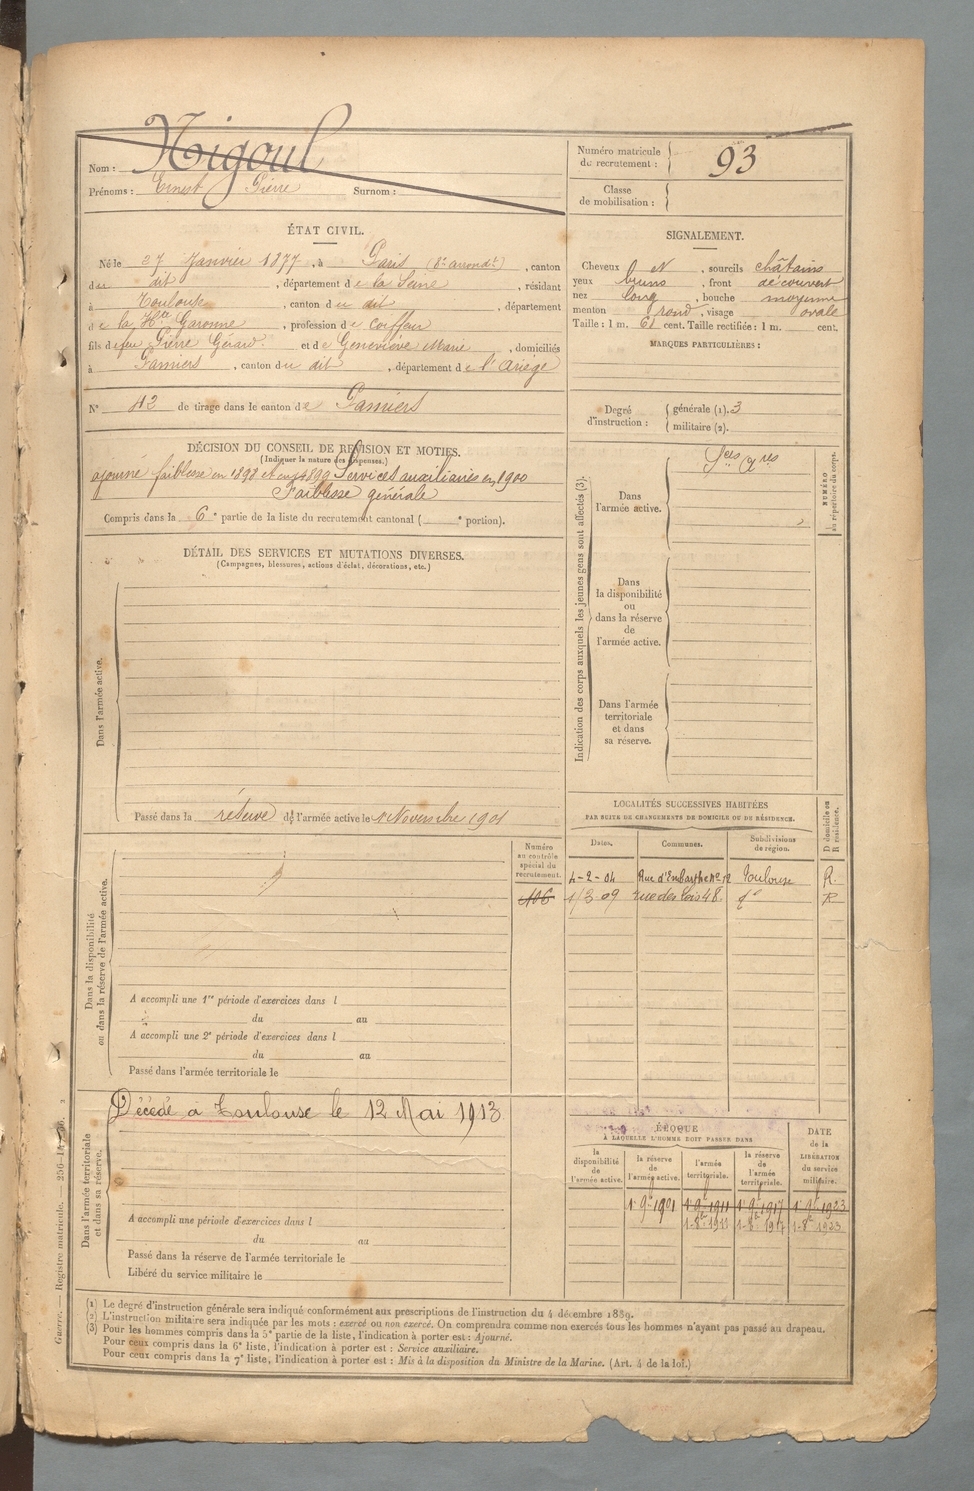 Nom : Nigoul
Prénoms : Ernest Pierre Surnom :
Numéro matricule
de recrutement : 93
Classe
de mobilisation :
ÉTAT CIVIL.
Né le 27 Janvier 1877, à Paris (8e arrondt), canton
du dit, département de la Seine, résidant
à Toulouse, canton du dit, département
de la Hte Garonne, profession de coiffeur
fils de feu Pierre Gérard et de Geneviève Marie, domiciliés
à Pamiers, canton du dit, département de l'Ariège
N° 42 de tirage dans le canton de Pamiers
SIGNALEMENT.
Cheveux et, sourcils châtains
yeux bruns, front découvert
nez long, bouche moyenne
menton rond, visage ovale
Taille : 1 m. 61 cent. Taille rectifiée : 1 m. cent.
MARQUES PARTICULIÈRES :
Degré
d'instruction :
générale (1). 3
militaire (2).
DÉCISION DU CONSEIL DE REVISION ET MOTIFS.
(Indiquer la nature des dispenses.)
ajourné faiblesse en 1898 et en 1899 Services auxiliaires en 1900
Faiblesse générale
Compris dans la 6e partie de la liste du recrutement cantonal ( e portion).
DÉTAIL DES SERVICES ET MUTATIONS DIVERSES.
(Campagnes, blessures, actions d'éclat, décorations, etc.)
Dans l'armée active.
Passé dans la réserve de l'armée active le 1 Novembre 1901
Indication des corps auxquels les jeunes gens sont affectés (3).
Dans
l'armée active.
Sces Ares
NUMÉRO
au répertoire du corps.
Dans
la disponibilité
ou
dans la réserve
de
l'armée active.
Dans l'armée
territoriale
et dans
sa réserve.
LOCALITÉS SUCCESSIVES HABITÉES
PAR SUITE DE CHANGEMENTS DE DOMICILE OU DE RÉSIDENCE.
Dates. Communes. Subdivisions
de région.
D domicile ou
R résidence.
4-2-04 Rue d'Embarthe No 12 Toulouse R.
1/3 09 rue des lois 48. do R
Numéro
au contrôle
spécial du
recrutement.
406
Dans la disponibilité
ou dans la réserve de l'armée active.
A accompli une 1re période d'exercices dans l
du au
A accompli une 2e période d'exercices dans l
du au
Passé dans l'armée territoriale le
Dans l'armée territoriale
et dans sa réserve.
Décédé à Toulouse le 12 Mai 1913
A accompli une période d'exercices dans l
du au
Passé dans la réserve de l'armée territoriale le
Libéré du service militaire le
ÉPOQUE
À LAQUELLE L'HOMME DOIT PASSER DANS
la
disponibilité
de
l'armée active.
la réserve
de
l'armée active.
l'armée
territoriale.
la réserve
de
l'armée
territoriale.
DATE
de la
LIBÉRATION
du service
militaire.
1er 9bre 1901 1er 9bre 1911 1er 9bre 1917 1er 9bre 1923
1-8bre 1911 1-8bre 1917 1-8bre 1923
(1) Le degré d'instruction générale sera indiqué conformément aux prescriptions de l'instruction du 4 décembre 1889.
(2) L'instruction militaire sera indiquée par les mots : exercé ou non exercé. On comprendra comme non exercés tous les hommes n'ayant pas passé au drapeau.
(3) Pour les hommes compris dans la 5e partie de la liste, l'indication à porter est : Ajourné.
Pour ceux compris dans la 6e liste, l'indication à porter est : Service auxiliaire.
Pour ceux compris dans la 7e liste, l'indication à porter est : Mis à la disposition du Ministre de la Marine. (Art. 4 de la loi.)
Guerre. — Registre matricule.